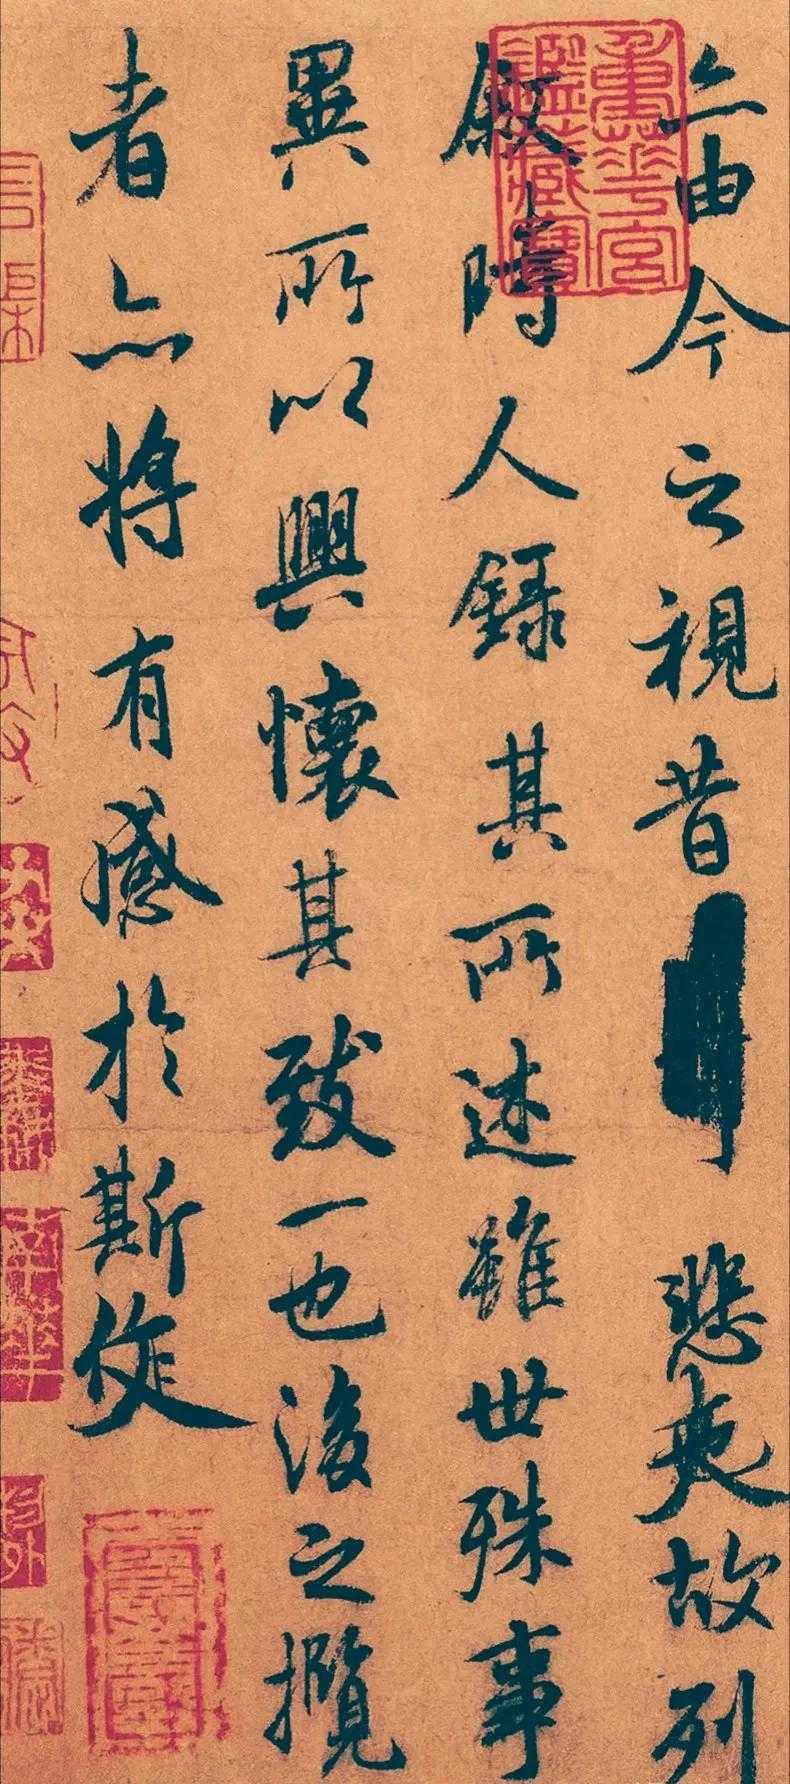 重華宮
鑑藏寶
亦由今之視昔悲夫故列
敘時人錄其所述雖世殊事
異所以興懷其致一也後之攬
者亦將有感於斯文